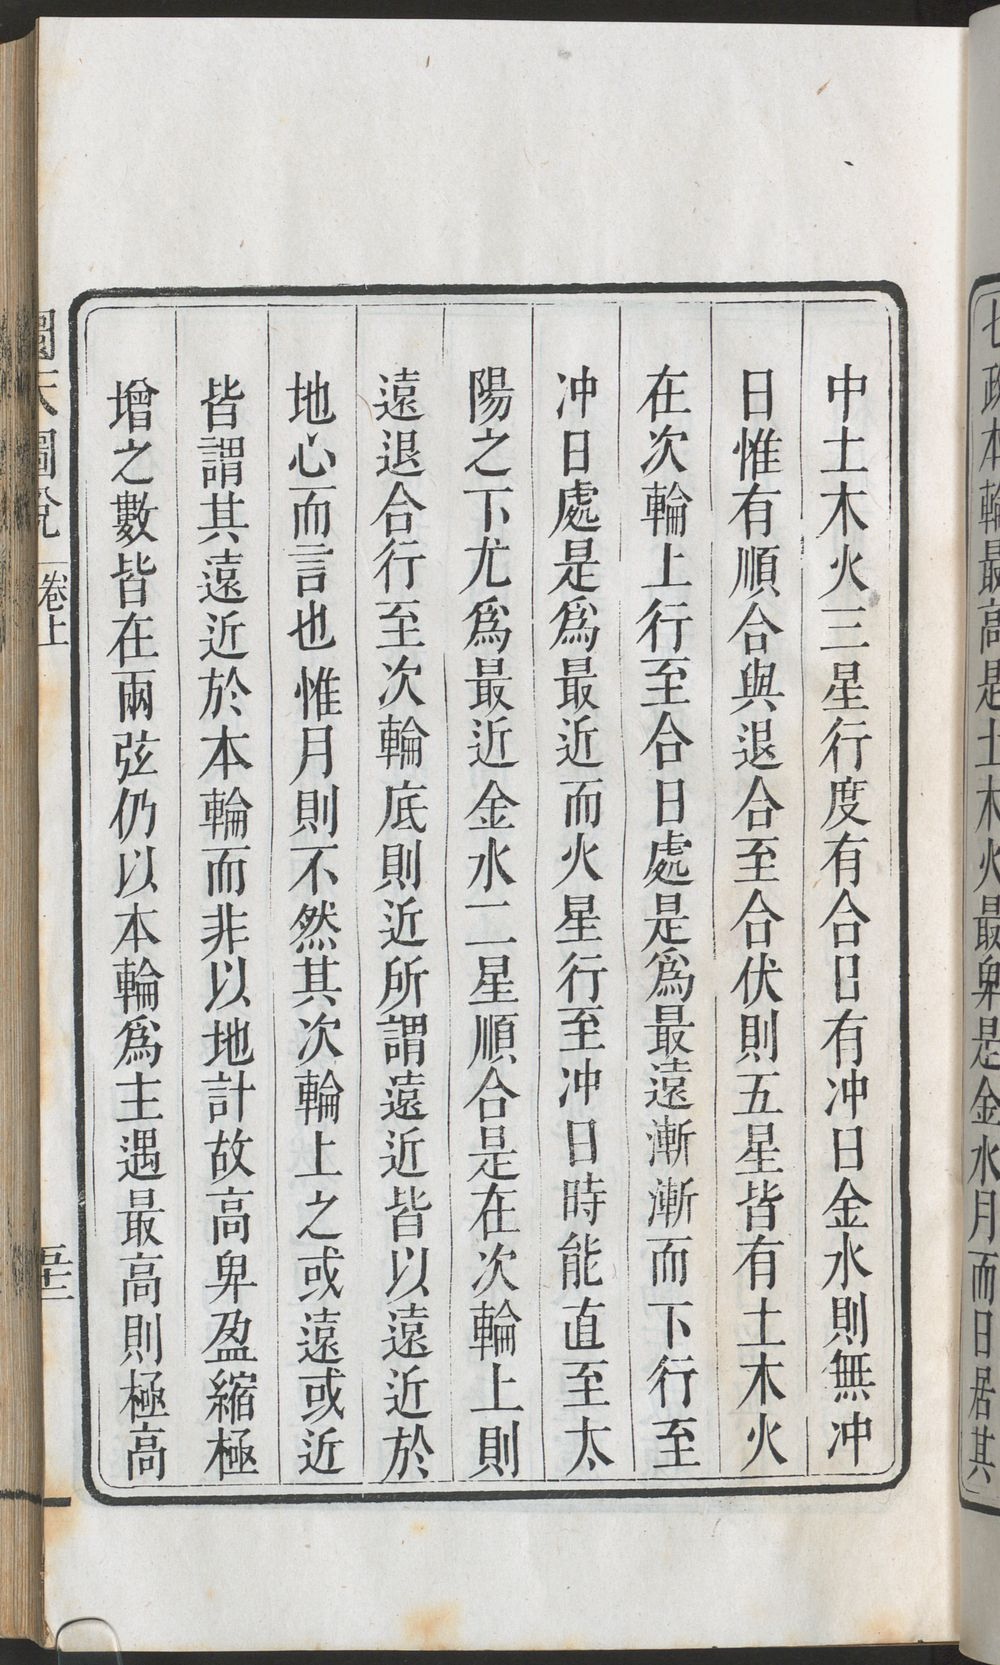 七政本輪最高是土木火最卑是金水月而日居其
中土木火三星行度有合日有冲日金水則無冲
日惟有順合與退合至合伏則五星皆有土木火
在次輪上行至合日處是爲最遠漸漸而下行至
冲日處是爲最近而火星行至冲日時能直至太
陽之下尤爲最近金水二星順合是在次輪上則
遠退合行至次輪底則近所謂遠近皆以遠近於
地心而言也惟月則不然其次輪上之或遠或近
皆謂其遠近於本輪而非以地計故高卑盈縮極
增之數皆在兩弦仍以本輪爲主遇最高則極高
圜天圖說
卷上